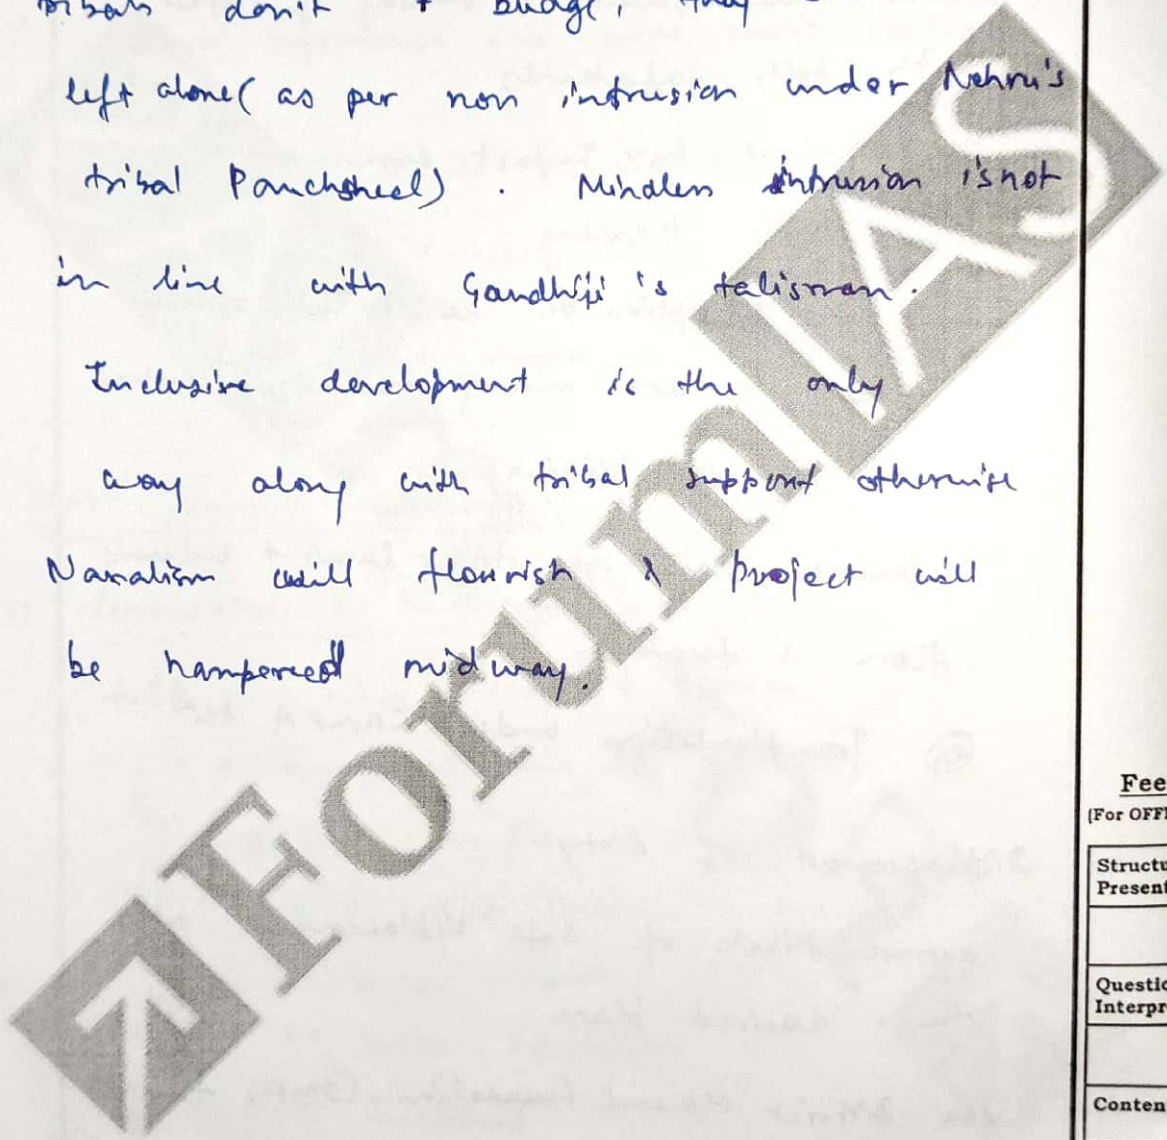 tribals don't budge, they
left alone (as per non intrusion under Nehru's
tribal Panchsheel). Mindless intrusion is not
in line with Gandhiji's talisman.
Inclusive development is the only
way along with tribal support otherwise
Naxalism will flourish & project will
be hampered midway.
ForumIAS
Fee
(For OFF
Structu
Present
Questio
Interpr
Conten